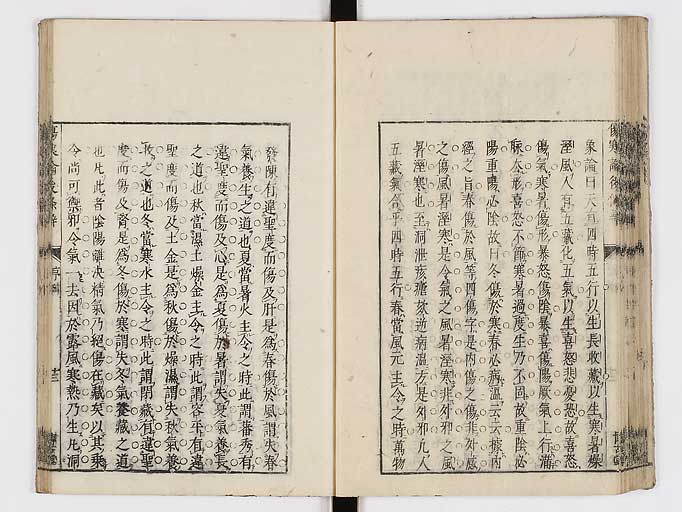 象論曰天有四時五行以生長收藏以生寒暑燥
溼風人有五藏化五氣以生喜怒悲憂恐故喜怒
傷氣寒暑傷形暴怒傷陰暴喜傷陽厥氣上行滿
脉去形喜怒不節寒暑過度生乃不固故重陰必
陽重陽必陰故曰冬傷於寒春必病溫云云據內
經之旨春傷於風等四傷字是內傷之傷非外感
之傷風暑溼寒是令氣之風暑溼寒非外邪之風
暑溼寒也至洞泄痎瘧欬逆病溫方是外邪凡人
五藏氣合乎四時五行春當風元主令之時萬物
發陳有違聖度而傷及肝是為春傷於風謂失春
氣養生之道也夏當暑火主令之時此謂蕃秀有
違聖度而傷及心是為夏傷於暑謂失夏氣養長
之道也秋當濕土燥金主令之時此謂容平有違
聖度而傷及土金是為秋傷於燥濕謂失秋氣養
收之道也冬當寒水主令之時此謂閉藏有違聖
度而傷及腎是為冬傷於寒謂失冬氣養藏之道
也凡此者陰陽離決精氣乃絕傷在藏矣以其乘
令尚可禦邪令氣一去因於露風寒熱乃生凡洞
傷寒論後條辨
序